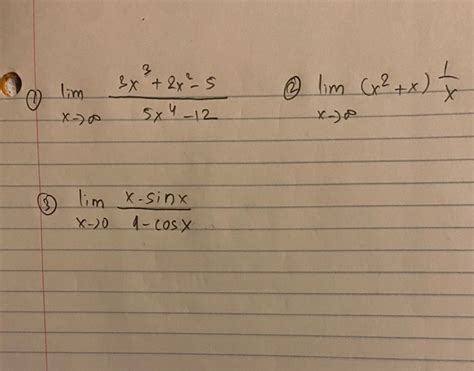 ① lim x→∞ (3x³ + 2x² - 5) / (5x⁴ - 12)
② lim x→∞ (x² + x)^(1/x)
③ lim x→0 (x - sin x) / (1 - cos x)